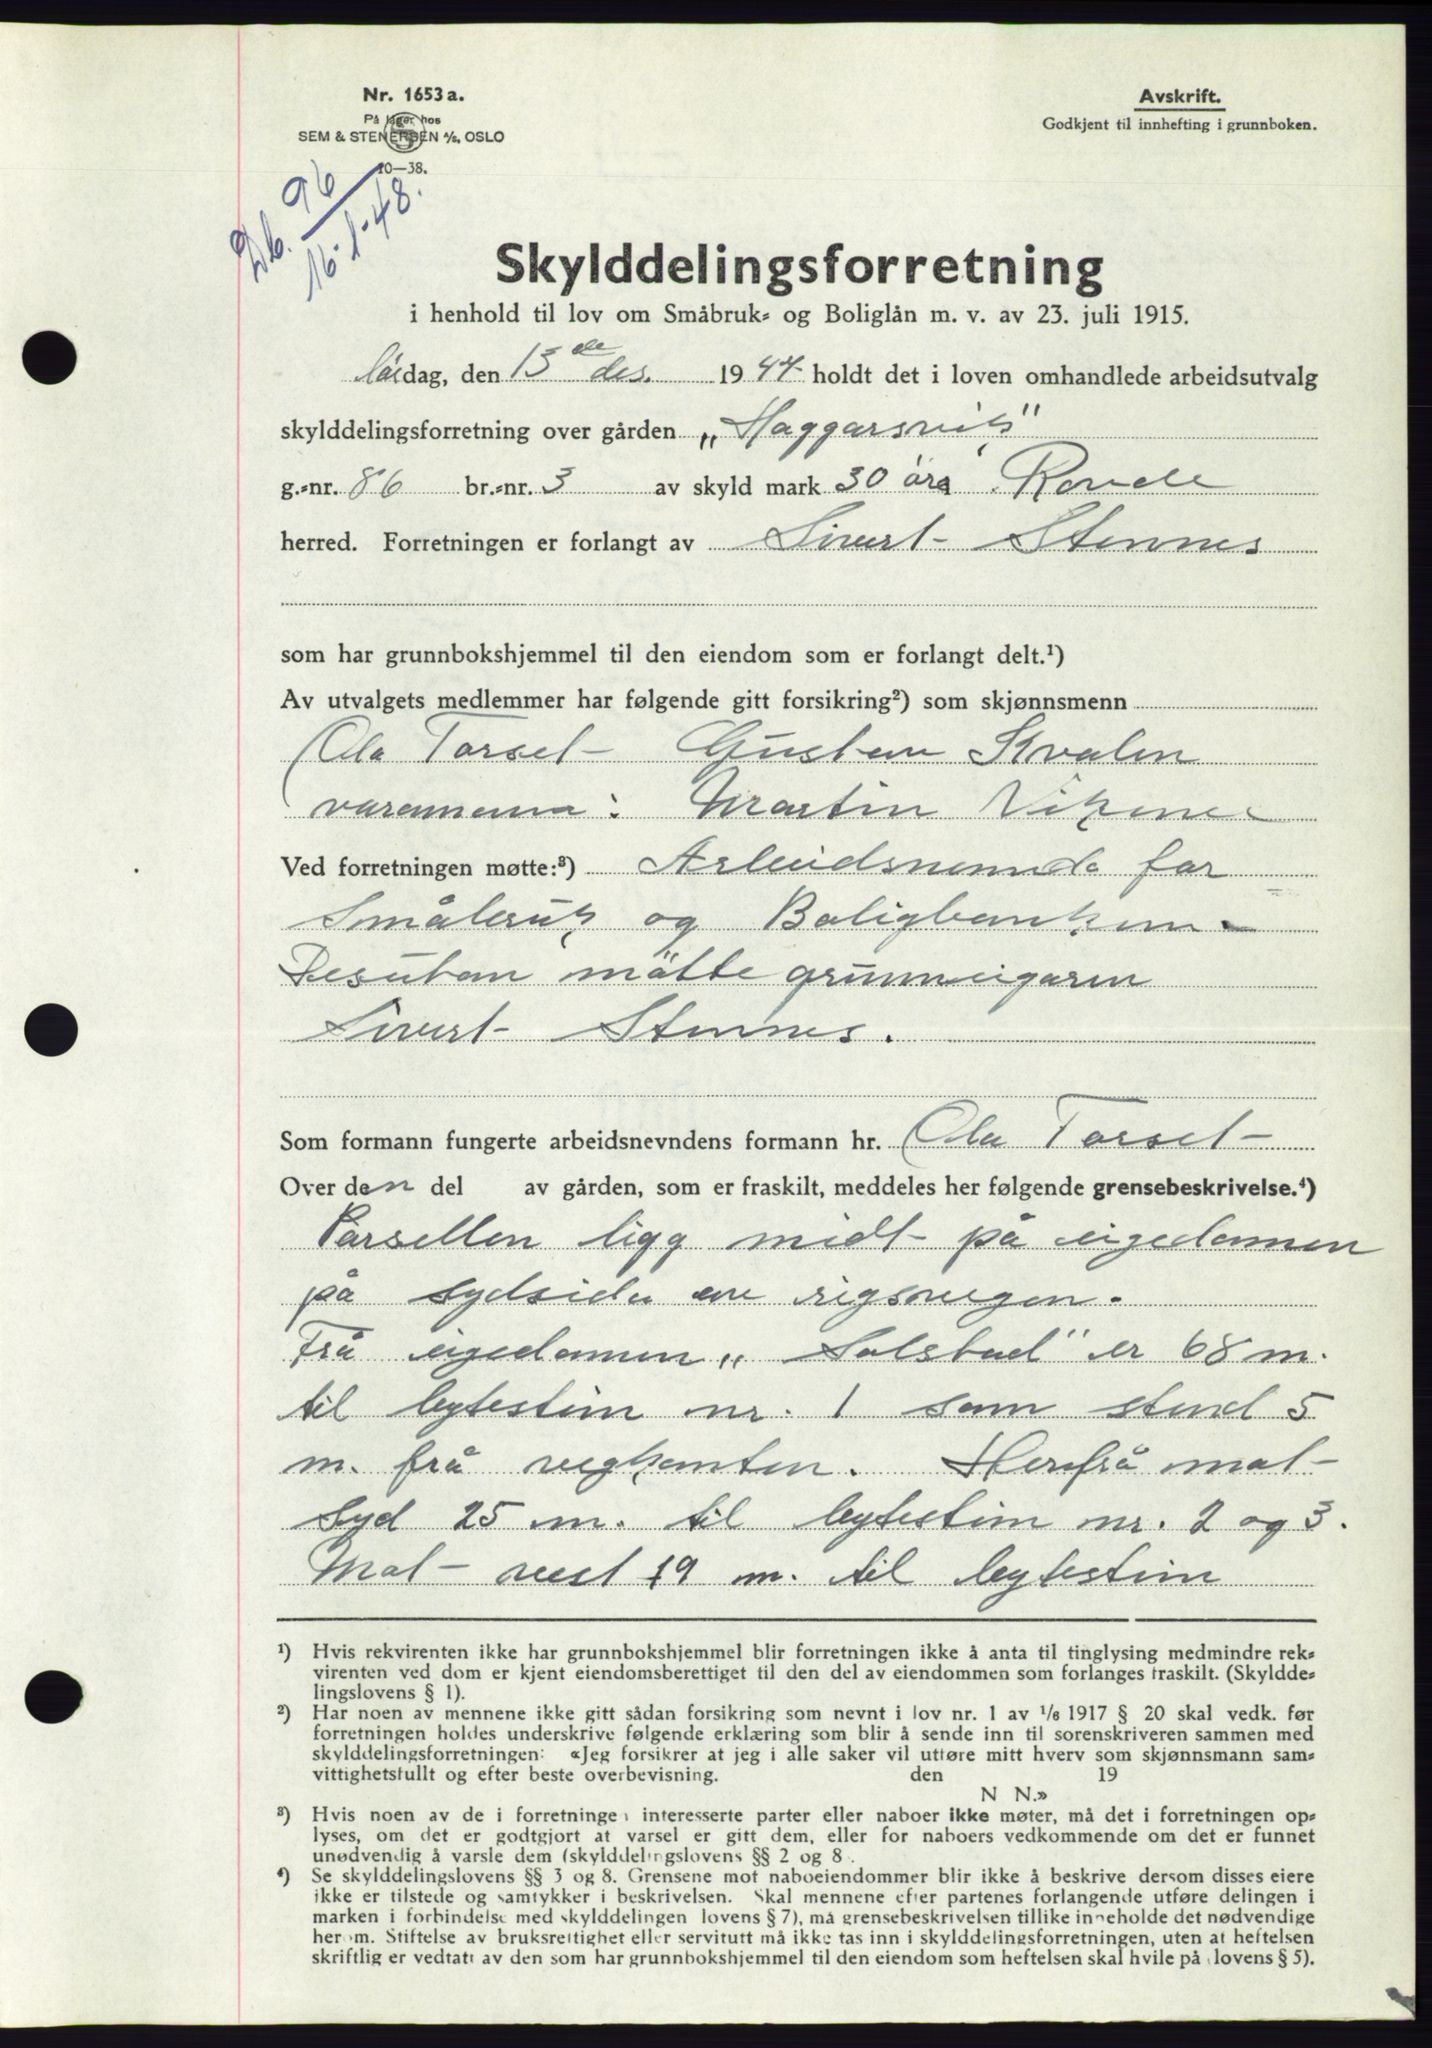 Nr. 1653 a.
På lager hos
SEM & STENERSEN A/S, OSLO
10—38.
Avskrift.
Godkjent til innhefting i grunnboken.
Db. 96
16-1-48.
Skylddelingsforretning
i henhold til lov om Småbruk= og Boliglån m. v. av 23. juli 1915.
lørdag, den 13de des. 1947 holdt det i loven omhandlede arbeidsutvalg
skylddelingsforretning over gården „Haggarsvik"
g.=nr. 86 br.=nr. 3 av skyld mark 30 øre i Rovde
herred. Forretningen er forlangt av Sivert Stennes
som har grunnbokshjemmel til den eiendom som er forlangt delt.¹)
Av utvalgets medlemmer har følgende gitt forsikring²) som skjønnsmenn
Ola Torset Gustav Kvalen
varamenn: Martin Vikene
Ved forretningen møtte:³) Arbeidsnemnda for
Småbruk og Boligbanken.
Desutan møtte grunneigaren
Sivert Stennes.
Som formann fungerte arbeidsnevndens formann hr. Ola Torset
Over den del av gården, som er fraskilt, meddeles her følgende grensebeskrivelse.⁴)
Parsellen ligg midt på eigedomen
på sydsida av rigsvegen.
Frå eigedomen „Solstad" er 68 m.
til bytestein nr. 1 som stend 5
m. frå vegkanten. Herfrå mot
syd 25 m. til bytestein nr. 2 og 3.
Mot vest 19 m. til bytestein
¹) Hvis rekvirenten ikke har grunnbokshjemmel blir forretningen ikke å anta til tinglysing medmindre rek=
virenten ved dom er kjent eiendomsberettiget til den del av eiendommen som forlanges fraskilt. (Skyldde=
lingslovens § 1).
²) Har noen av mennene ikke gitt sådan forsikring som nevnt i lov nr. 1 av 1/6 1917 § 20 skal vedk. før
forretningen holdes underskrive følgende erklæring som blir å sende inn til sorenskriveren sammen med
skylddelingsforretningen: «Jeg forsikrer at jeg i alle saker vil utføre mitt hverv som skjønnsmann sam=
vittighetsfullt og efter beste overbevisning. den 19
N N.»
³) Hvis noen av de i forretningen interesserte parter eller naboer ikke møter, må det i forretningen op=
lyses, om det er godtgjort at varsel er gitt dem, eller for naboers vedkommende om det er funnet
unødvendig å varsle dem (skylddelingslovens §§ 2 og 8.
⁴) Se skylddelingslovens §§ 3 og 8. Grensene mot naboeiendommer blir ikke å beskrive dersom disses eiere
ikke er tilstede og samtykker i beskrivelsen. Skal mennene efter partenes forlangende utføre delingen i
marken i forbindelse med skylddelingen lovens § 7), må grensebeskrivelsen tillike inneholde det nødvendige
herom. Stiftelse av bruksrettighet eller servitutt må ikke tas inn i skylddelingsforretningen, uten at heftelsen
skriftlig er vedtatt av den som har grunnbokshjemmel til den eiendom som heftelsen skal hvile på lovens § 5).